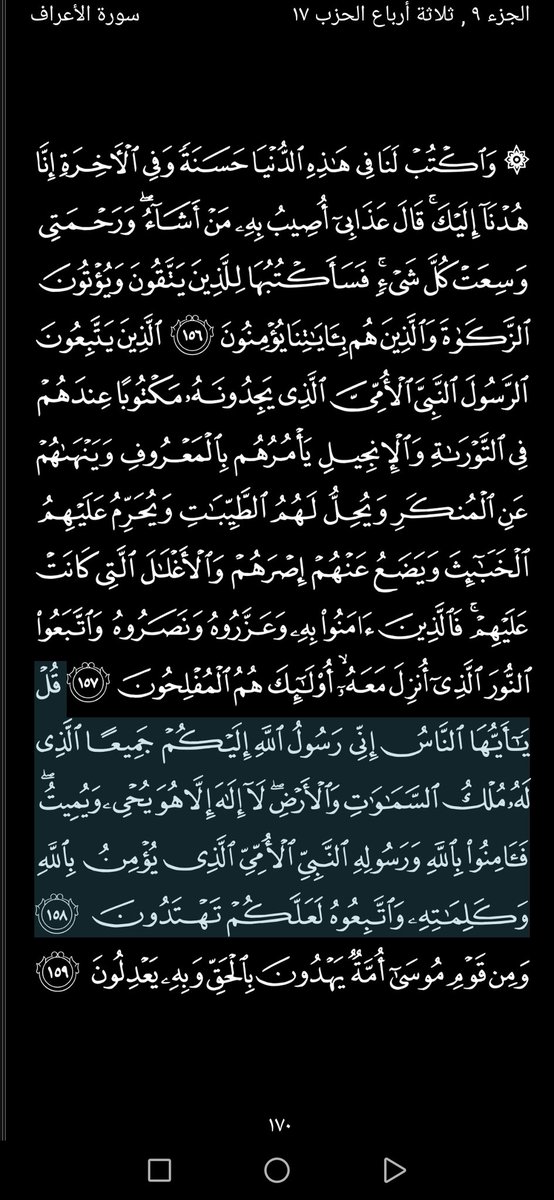 الجزء ٩ , ثلاثة أرباع الحزب ١٧
سورة الأعراف
۞ وَٱكۡتُبۡ لَنَا فِي هَٰذِهِ ٱلدُّنۡيَا حَسَنَةٗ وَفِي ٱلۡأٓخِرَةِ إِنَّا
هُدۡنَآ إِلَيۡكَۚ قَالَ عَذَابِيٓ أُصِيبُ بِهِۦ مَنۡ أَشَآءُۖ وَرَحۡمَتِي
وَسِعَتۡ كُلَّ شَيۡءٖۚ فَسَأَكۡتُبُهَا لِلَّذِينَ يَتَّقُونَ وَيُؤۡتُونَ
ٱلزَّكَوٰةَ وَٱلَّذِينَ هُم بِـَٔايَٰتِنَا يُؤۡمِنُونَ ١٥٦ ٱلَّذِينَ يَتَّبِعُونَ
ٱلرَّسُولَ ٱلنَّبِيَّ ٱلۡأُمِّيَّ ٱلَّذِي يَجِدُونَهُۥ مَكۡتُوبًا عِندَهُمۡ
فِي ٱلتَّوۡرَىٰةِ وَٱلۡإِنجِيلِ يَأۡمُرُهُم بِٱلۡمَعۡرُوفِ وَيَنۡهَىٰهُمۡ
عَنِ ٱلۡمُنكَرِ وَيُحِلُّ لَهُمُ ٱلطَّيِّبَٰتِ وَيُحَرِّمُ عَلَيۡهِمُ
ٱلۡخَبَٰٓئِثَ وَيَضَعُ عَنۡهُمۡ إِصۡرَهُمۡ وَٱلۡأَغۡلَٰلَ ٱلَّتِي كَانَتۡ
عَلَيۡهِمۡۚ فَٱلَّذِينَ ءَامَنُواْ بِهِۦ وَعَزَّرُوهُ وَنَصَرُوهُ وَٱتَّبَعُواْ
ٱلنُّورَ ٱلَّذِيٓ أُنزِلَ مَعَهُۥٓ أُوْلَٰٓئِكَ هُمُ ٱلۡمُفۡلِحُونَ ١٥٧ قُلۡ
يَٰٓأَيُّهَا ٱلنَّاسُ إِنِّي رَسُولُ ٱللَّهِ إِلَيۡكُمۡ جَمِيعًا ٱلَّذِي
لَهُۥ مُلۡكُ ٱلسَّمَٰوَٰتِ وَٱلۡأَرۡضِۖ لَآ إِلَٰهَ إِلَّا هُوَ يُحۡيِۦ وَيُمِيتُۖ
فَـَٔامِنُواْ بِٱللَّهِ وَرَسُولِهِ ٱلنَّبِيِّ ٱلۡأُمِّيِّ ٱلَّذِي يُؤۡمِنُ بِٱللَّهِ
وَكَلِمَٰتِهِۦ وَٱتَّبِعُوهُ لَعَلَّكُمۡ تَهۡتَدُونَ ١٥٨
وَمِن قَوۡمِ مُوسَىٰٓ أُمَّةٞ يَهۡدُونَ بِٱلۡحَقِّ وَبِهِۦ يَعۡدِلُونَ ١٥٩
١٧٠